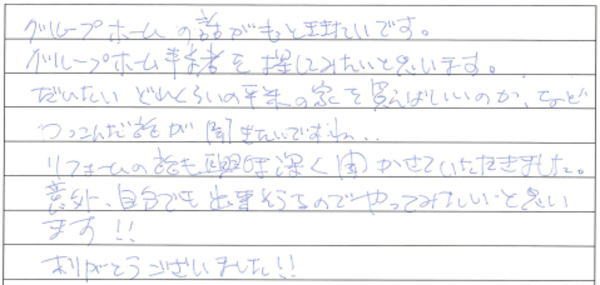 グループホームの話がもっと聞きたいです。
グループホーム業者を探してみたいと思います。
だいたいどれくらいの平米の家を買えばいいのか、など
つっこんだ話が聞きたいですね、、
リフォームの話も興味深く聞かせていただきました。
意外、自分でも出来そうなのでやってみたいと思い
ます!!
ありがとうございました!!